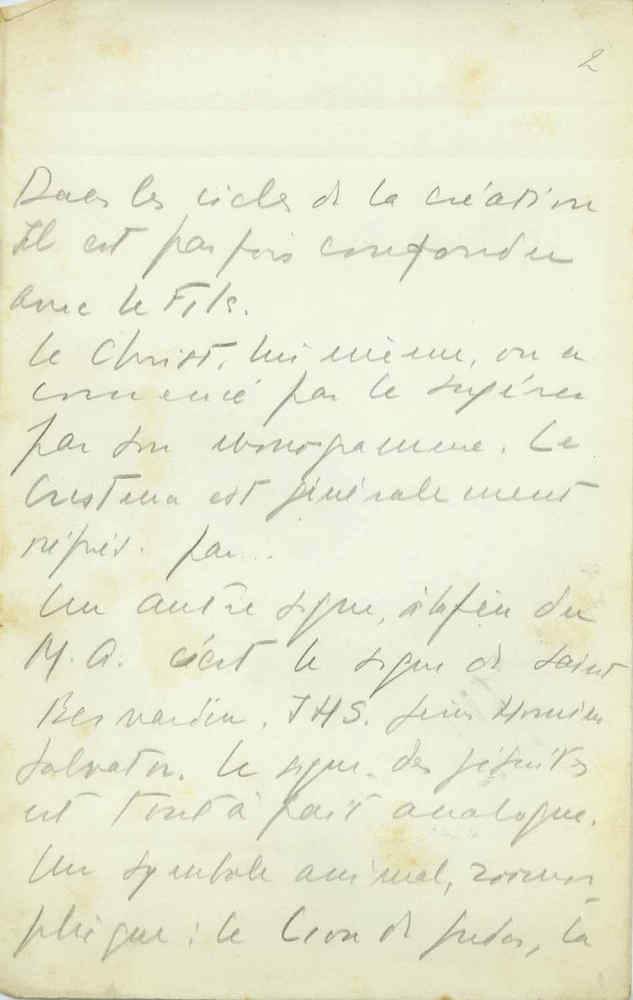 2
Dans les cicles de la création
Il est parfois confondu
avec le Fils.
Le Christ, lui même, on a
commencé par le suggérer
par son monogramme. Le
est généralement
réprés. par...
Un autre signe, à la fin du
M. A. c'est le signe de Saint
Bernardin. JHS. Jesus Hominum
Salvator. Le signe des jésuites
est tout à fait analogue.
Un symbole animal, zoomor
phique : le Lion de Juda, la